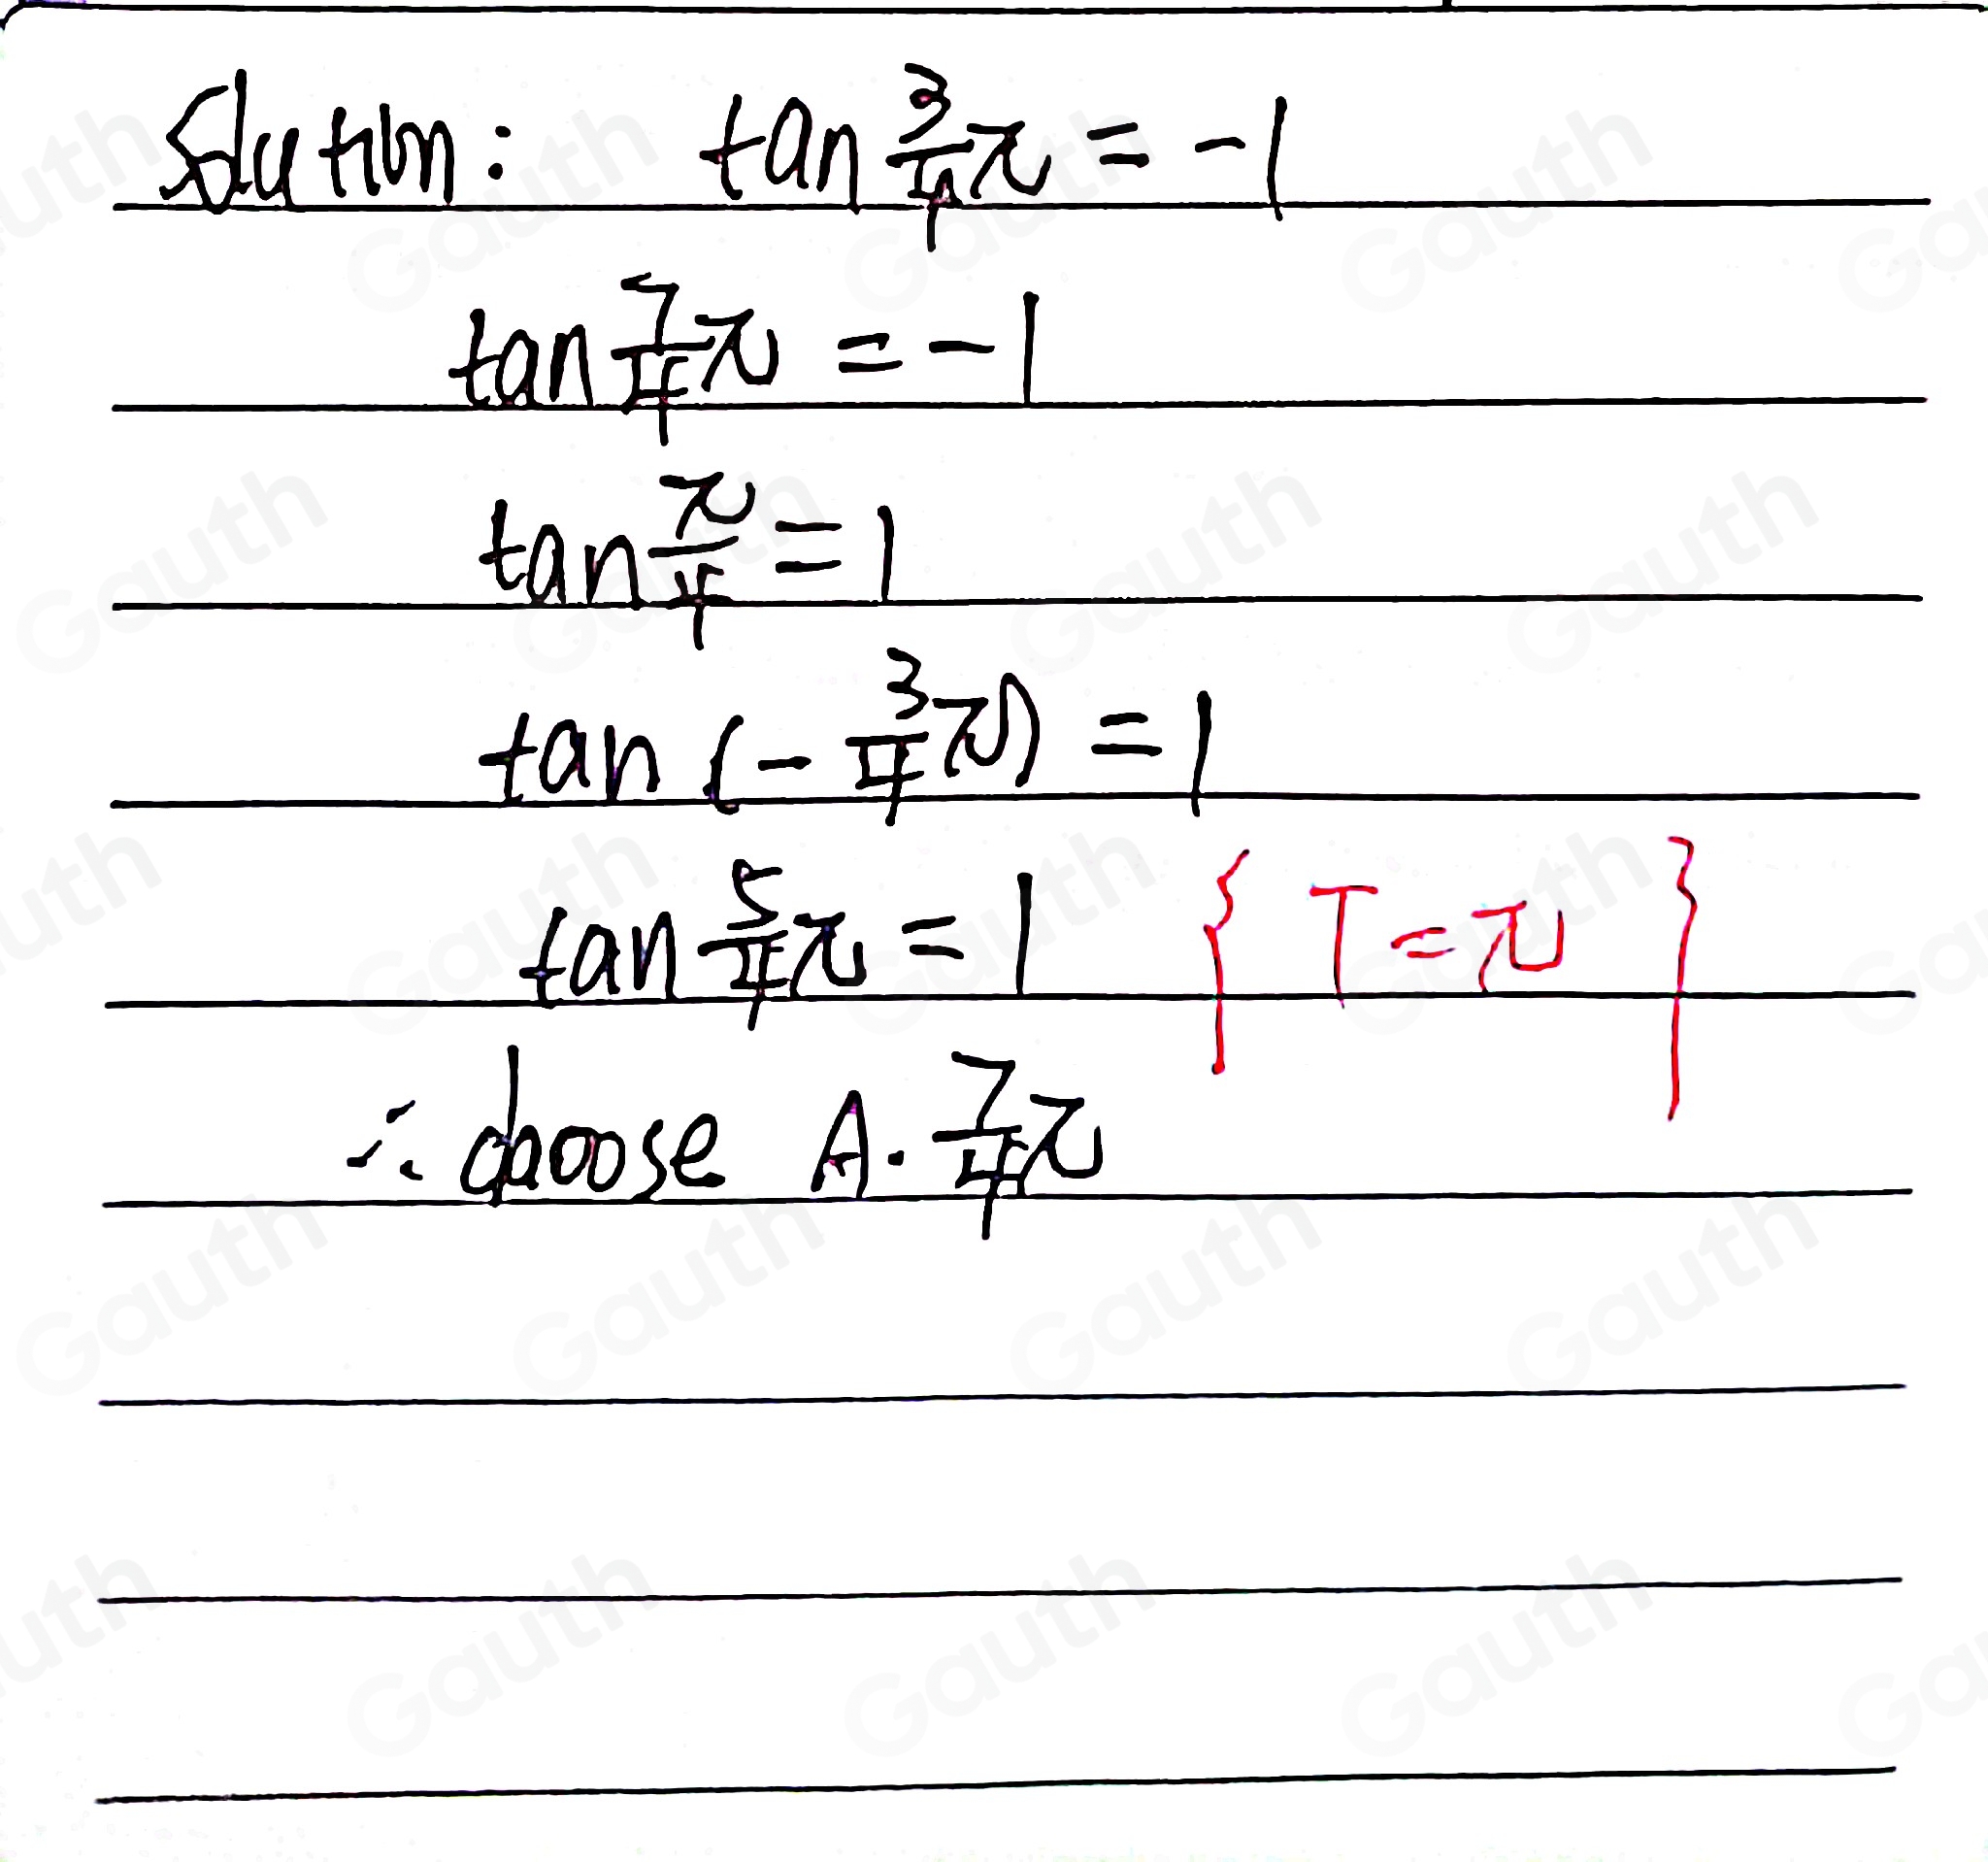 Solution: tan 3/4 π = -1
tan 7/4 π = -1
tan π/4 = 1
tan (- 3/4 π) = 1
tan 5/4 π = 1 { T = π }
∴ choose A. 7/4 π